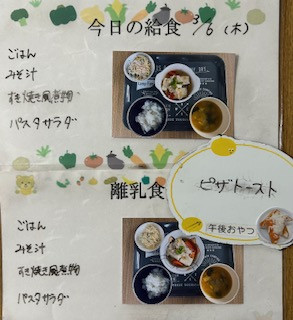 今日の給食 3/6 (木)
ごはん
みそ汁
すき焼き風煮物
パスタサラダ
離乳食
ピザトースト
午後おやつ
ごはん
みそ汁
すき焼き風煮物
パスタサラダ